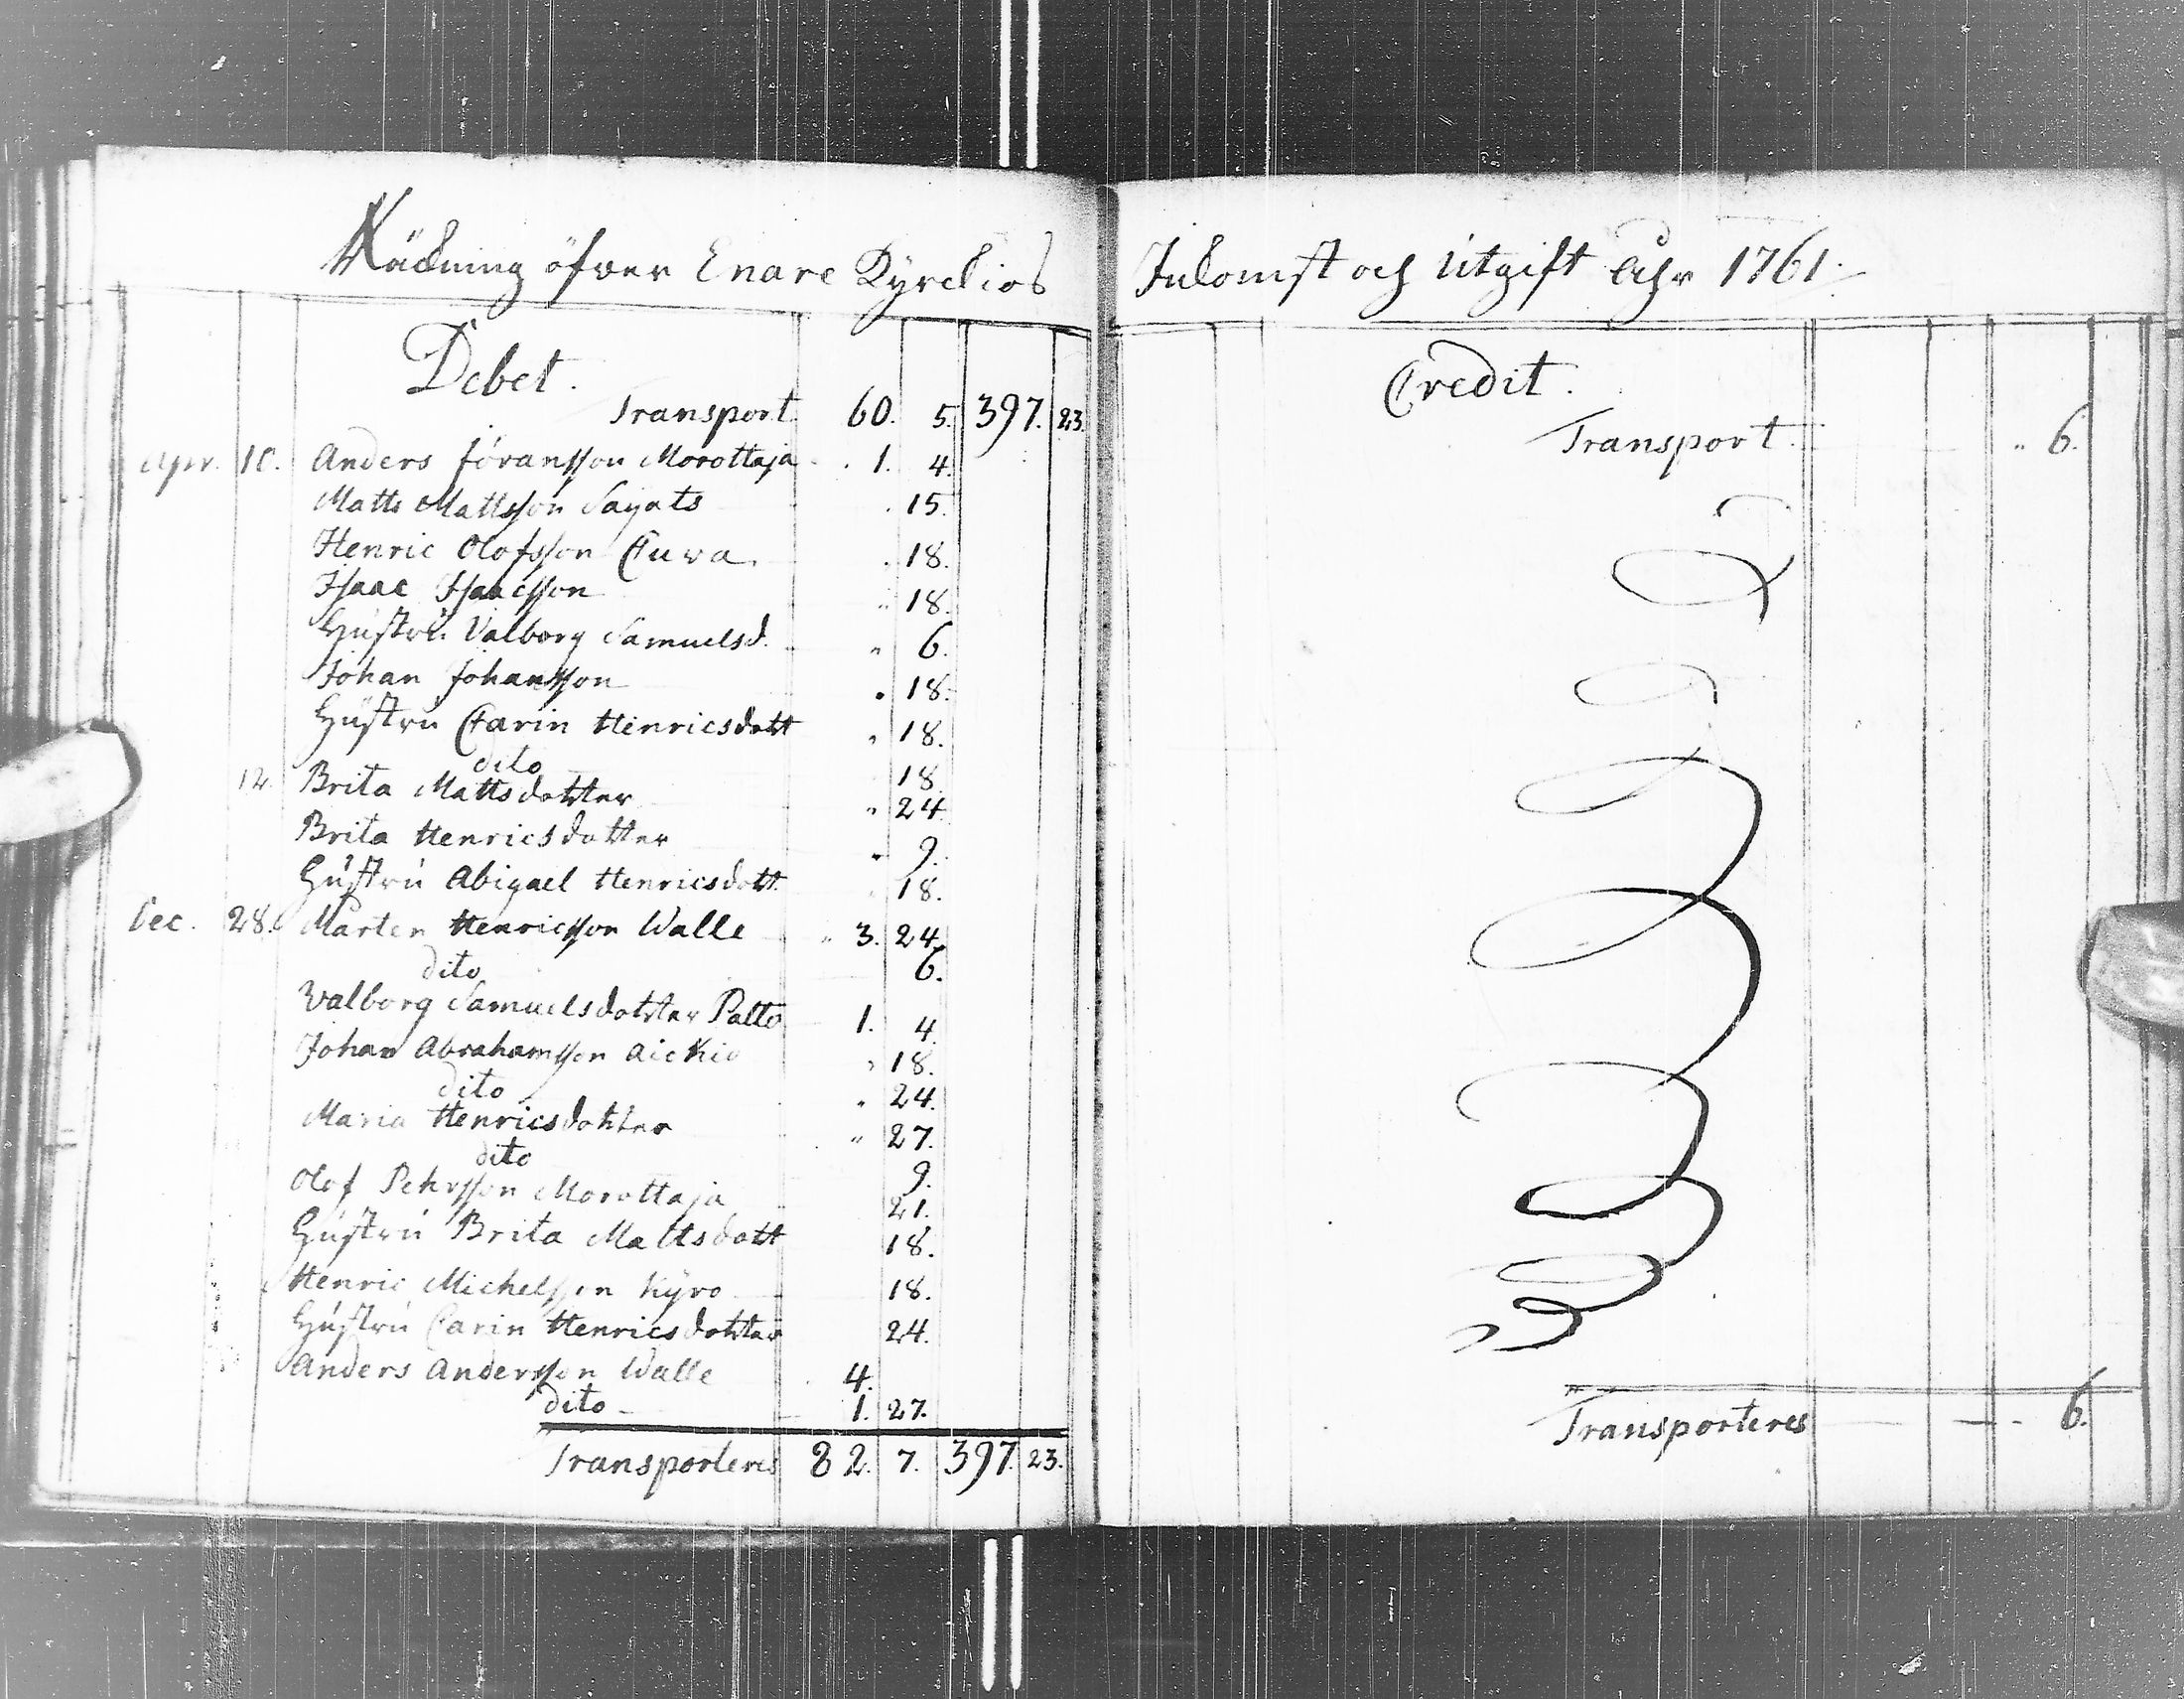 Räckning öfwer Enare Kyrckios
Debet.
Transport 60. 5. 397. 23.
Apr. 10. Anders Jöransson Morottaja 1. 4.
Matts Mattsson Sayats 15.
Henric Olofsson Cuva. 18.
Isaac Isaacsson 18.
Hustru Valborg Samuelsd. 6.
Johan Johansson 18.
Hustru Carin Henricsdott 18.
dito 18
12. Brita Mattsdotter 24
Brita Henricsdotter 9.
Hustru Abigael Henricsdott. 18.
Dec. 28. Mårten Henricsson Walle 3. 24.
dito 6.
Valborg Samuelsdotter Palto 1. 4.
Johan Abrahamsson Aickio 18.
dito 24.
Maria Henricsdotter 27.
dito 9.
Olof Pehrsson Morottaja 21.
Hustru Brita Mattsdott 18.
Henric Michelsson Kyro 18.
Hustru Carin Henricsdotter 24.
Anders Andersson Walle 4.
dito 1. 27.
Transporteres 82. 7. 397. 23.
Inkomst och Utgift Åhr 1761.
Credit.
Transport. 6.
Transporteres 6.